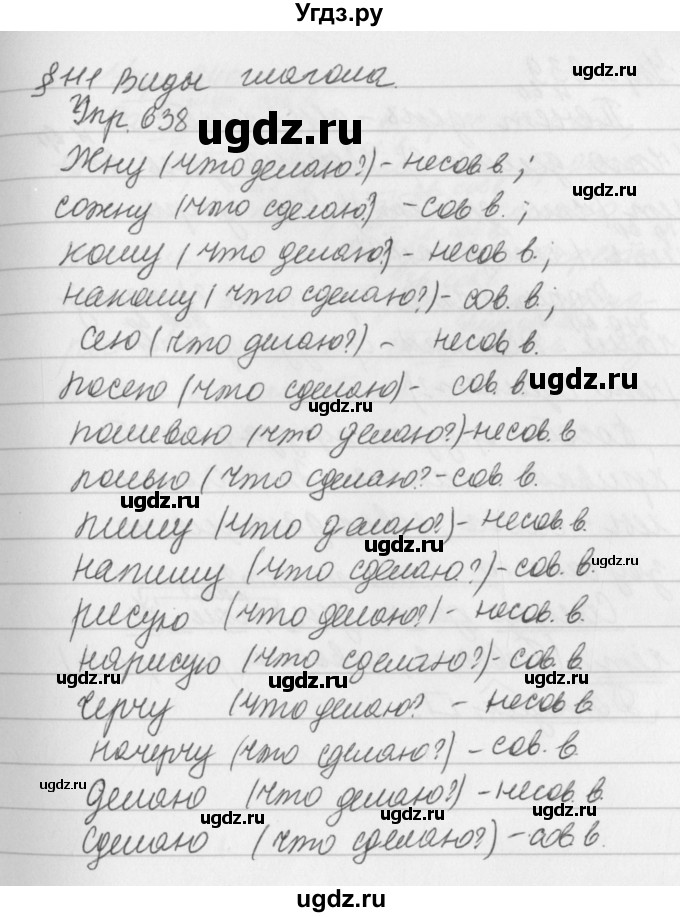 Угдз.ру
§ 111 Виды глагола.
Упр. 638
ugdz.ru
ugdz.ru
Жну (что делаю?) - несов в.;
ugdz.ru
сожну (что сделаю?) - сов в.;
кошу (что делаю?) - несов в.;
ugdz.ru
накошу (что сделаю?) - сов. в.;
сею (что делаю?) - несов в.
ugdz.ru
посею (что сделаю) - сов. в.
ugdz.ru
поливаю (что делаю?) - несов. в
полью (что сделаю? - сов. в.
ugdz.ru
пишу (что делаю?) - несов. в.
ugdz.ru
напишу (что сделаю?) - сов. в.
ugdz.ru
рисую (что делаю?) - несов. в.
нарисую (что сделаю?) - сов. в.
ugdz.ru
ugdz.ru
черчу (что делаю? - несов в.
начерчу (что сделаю?) - сов. в.
ugdz.ru
делаю (что делаю?) - несов. в.
ugdz.ru
сделаю (что сделаю?) - сов. в.
ugdz.ru
ugdz.ru